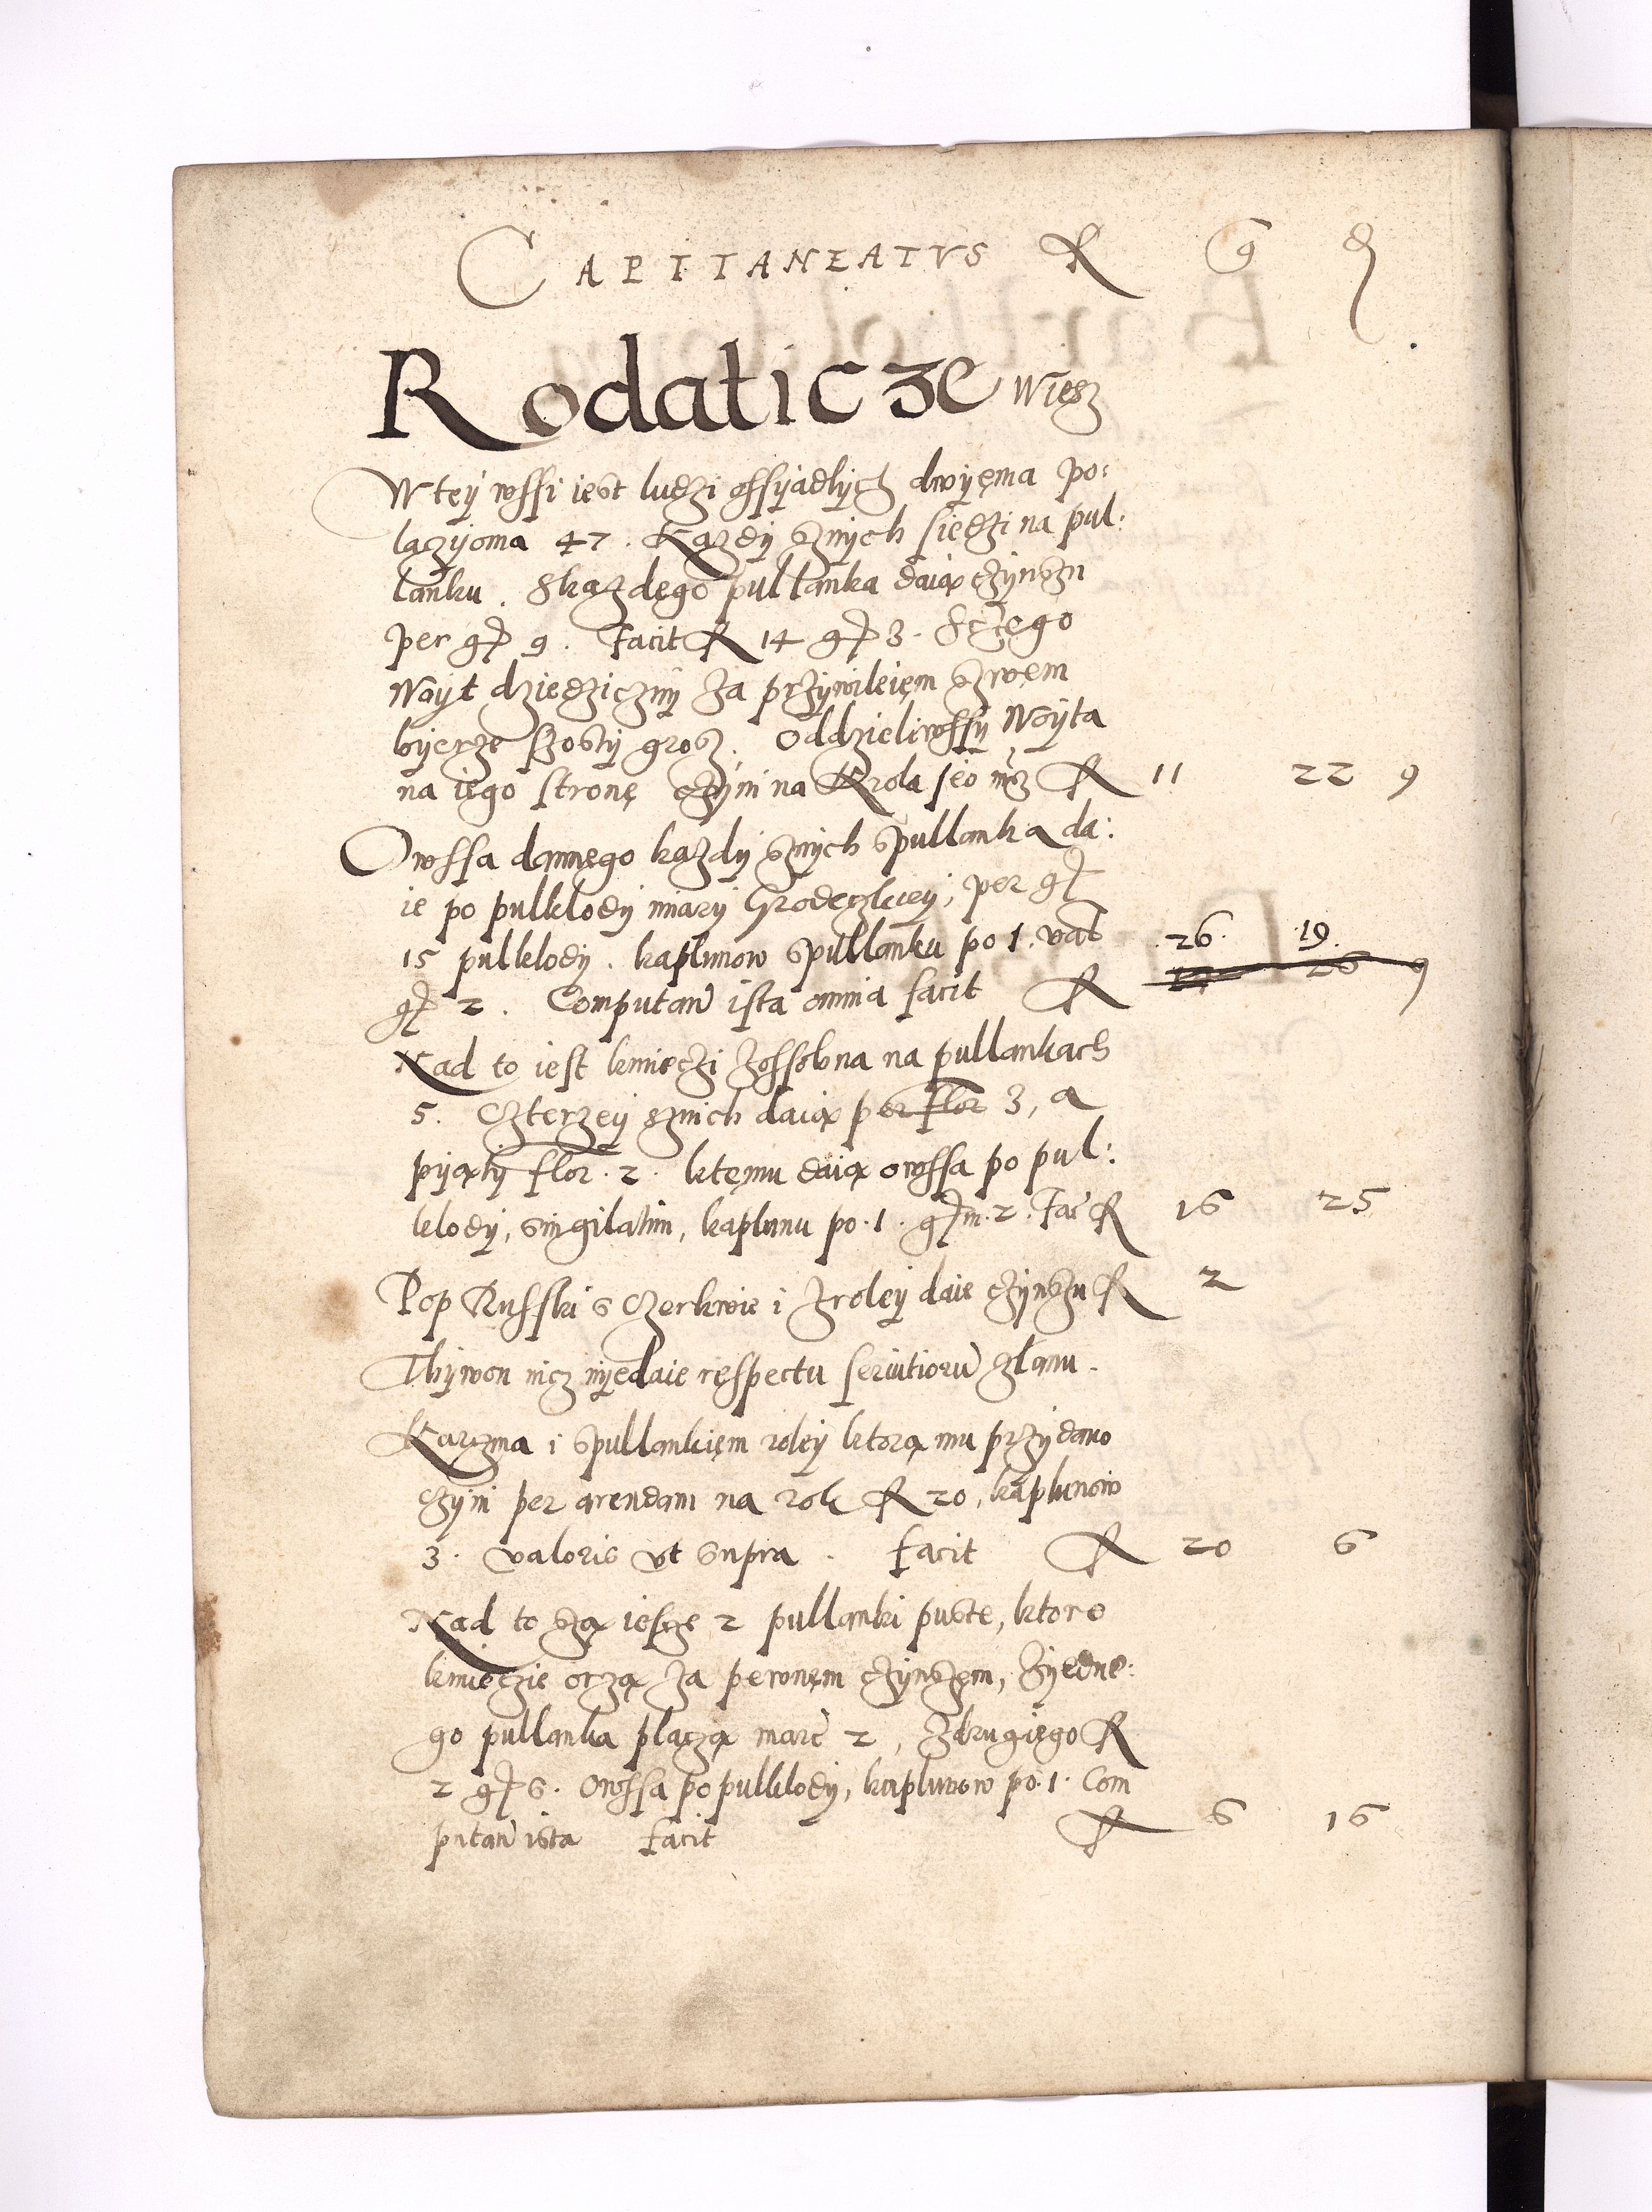 CAPITANEATVS R G D
Rodaticze Wiesz
W tey wssi iest ludzi ossyadlych dwyema po:
laczyoma 47. Kazdy sznych siedzi na pul:
lanku. Skazdego pullanka daią czynszu
per gr 9. Facit R 14 gr 3. Sczego
Woyt dziedziczny za przywileiem szwem
byerze szosty grosz. Oddzieliwssy Woyta
na iego stronę czyni na Krola jeo R 11 22 9
Owssa dannego kazdy sznych spullanka da:
ie po pulklody miary Grodeczkiey, per gr
15 pulklody. kaplunow spullanku po 1. val 26. 19.
gr 2. Computan ista omnia facit R
Nad to iest kmieczi zossobna na pullankach
5. Czterzey sznich daią per flor 3, a
pyąty flor. 2. ktemu daią owssa po pul:
klody, singilatim, kaplunu po. 1. gr m. 2. Fac R 16 25
Pop Russki s Czerkwie i zroley daie czynszu R 2
Thywon nicz nyedaie respectu seruitioru zlanu.
Karzma i spullankiem roley ktorą mu przydano
czyni per arendam na rok R 20, kaplunow
3. valoris vt supra. facit R 20 6
Nad to szą iescze 2 pullanki puste, ktore
kmieczie orzą za pewnem czynszem, Zyedne:
go pullanka placzą marc 2, Zdrugiego R
2 gr 6. Owssa po pulklody, kaplunow po. 1. Com
putan ista facit R 6 16